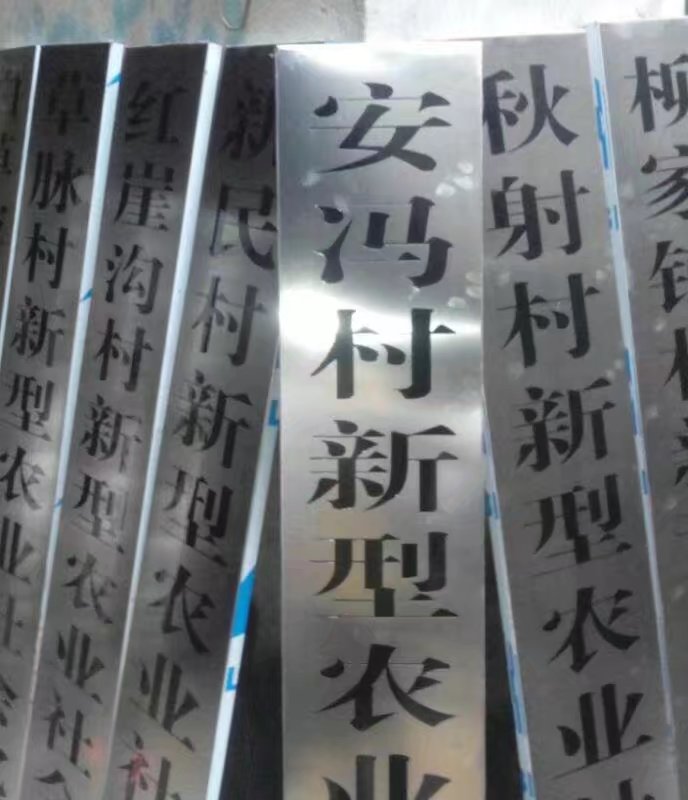 草脉村新型农业社
红崖沟村新型农业社
新民村新型农业社
安冯村新型农业
秋射村新型农业
柳家